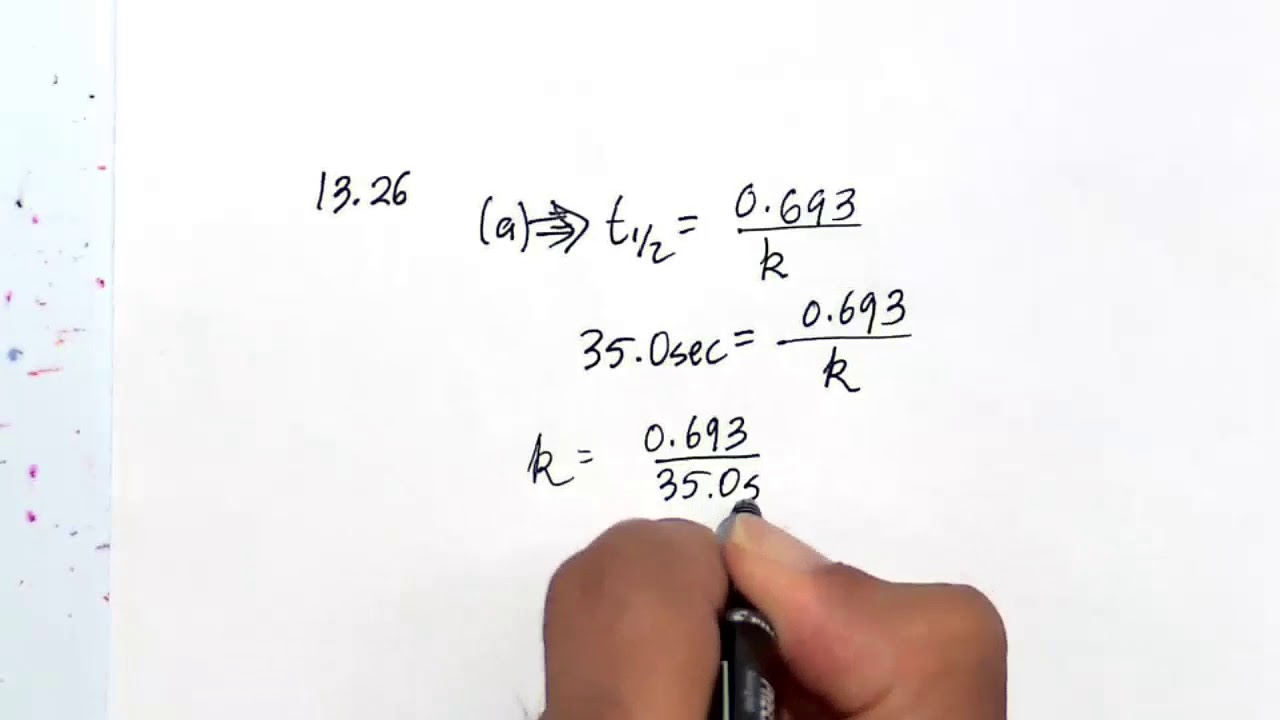 13.26
(a) ⇒ t1/2 = 0.693/k
35.0sec = 0.693/k
k = 0.693/35.0s